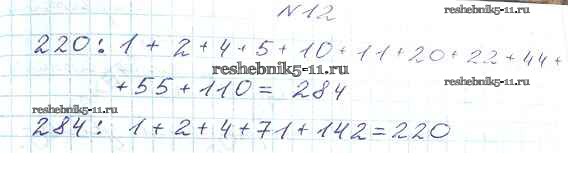 №12
reshebnik5-11.ru
220: 1 + 2 + 4 + 5 + 10 + 11 + 20 + 22 + 44 +
reshebnik5-11.ru
reshebnik5-11.ru
+ 55 + 110 = 284
reshebnik5-11.ru
284: 1 + 2 + 4 + 71 + 142 = 220